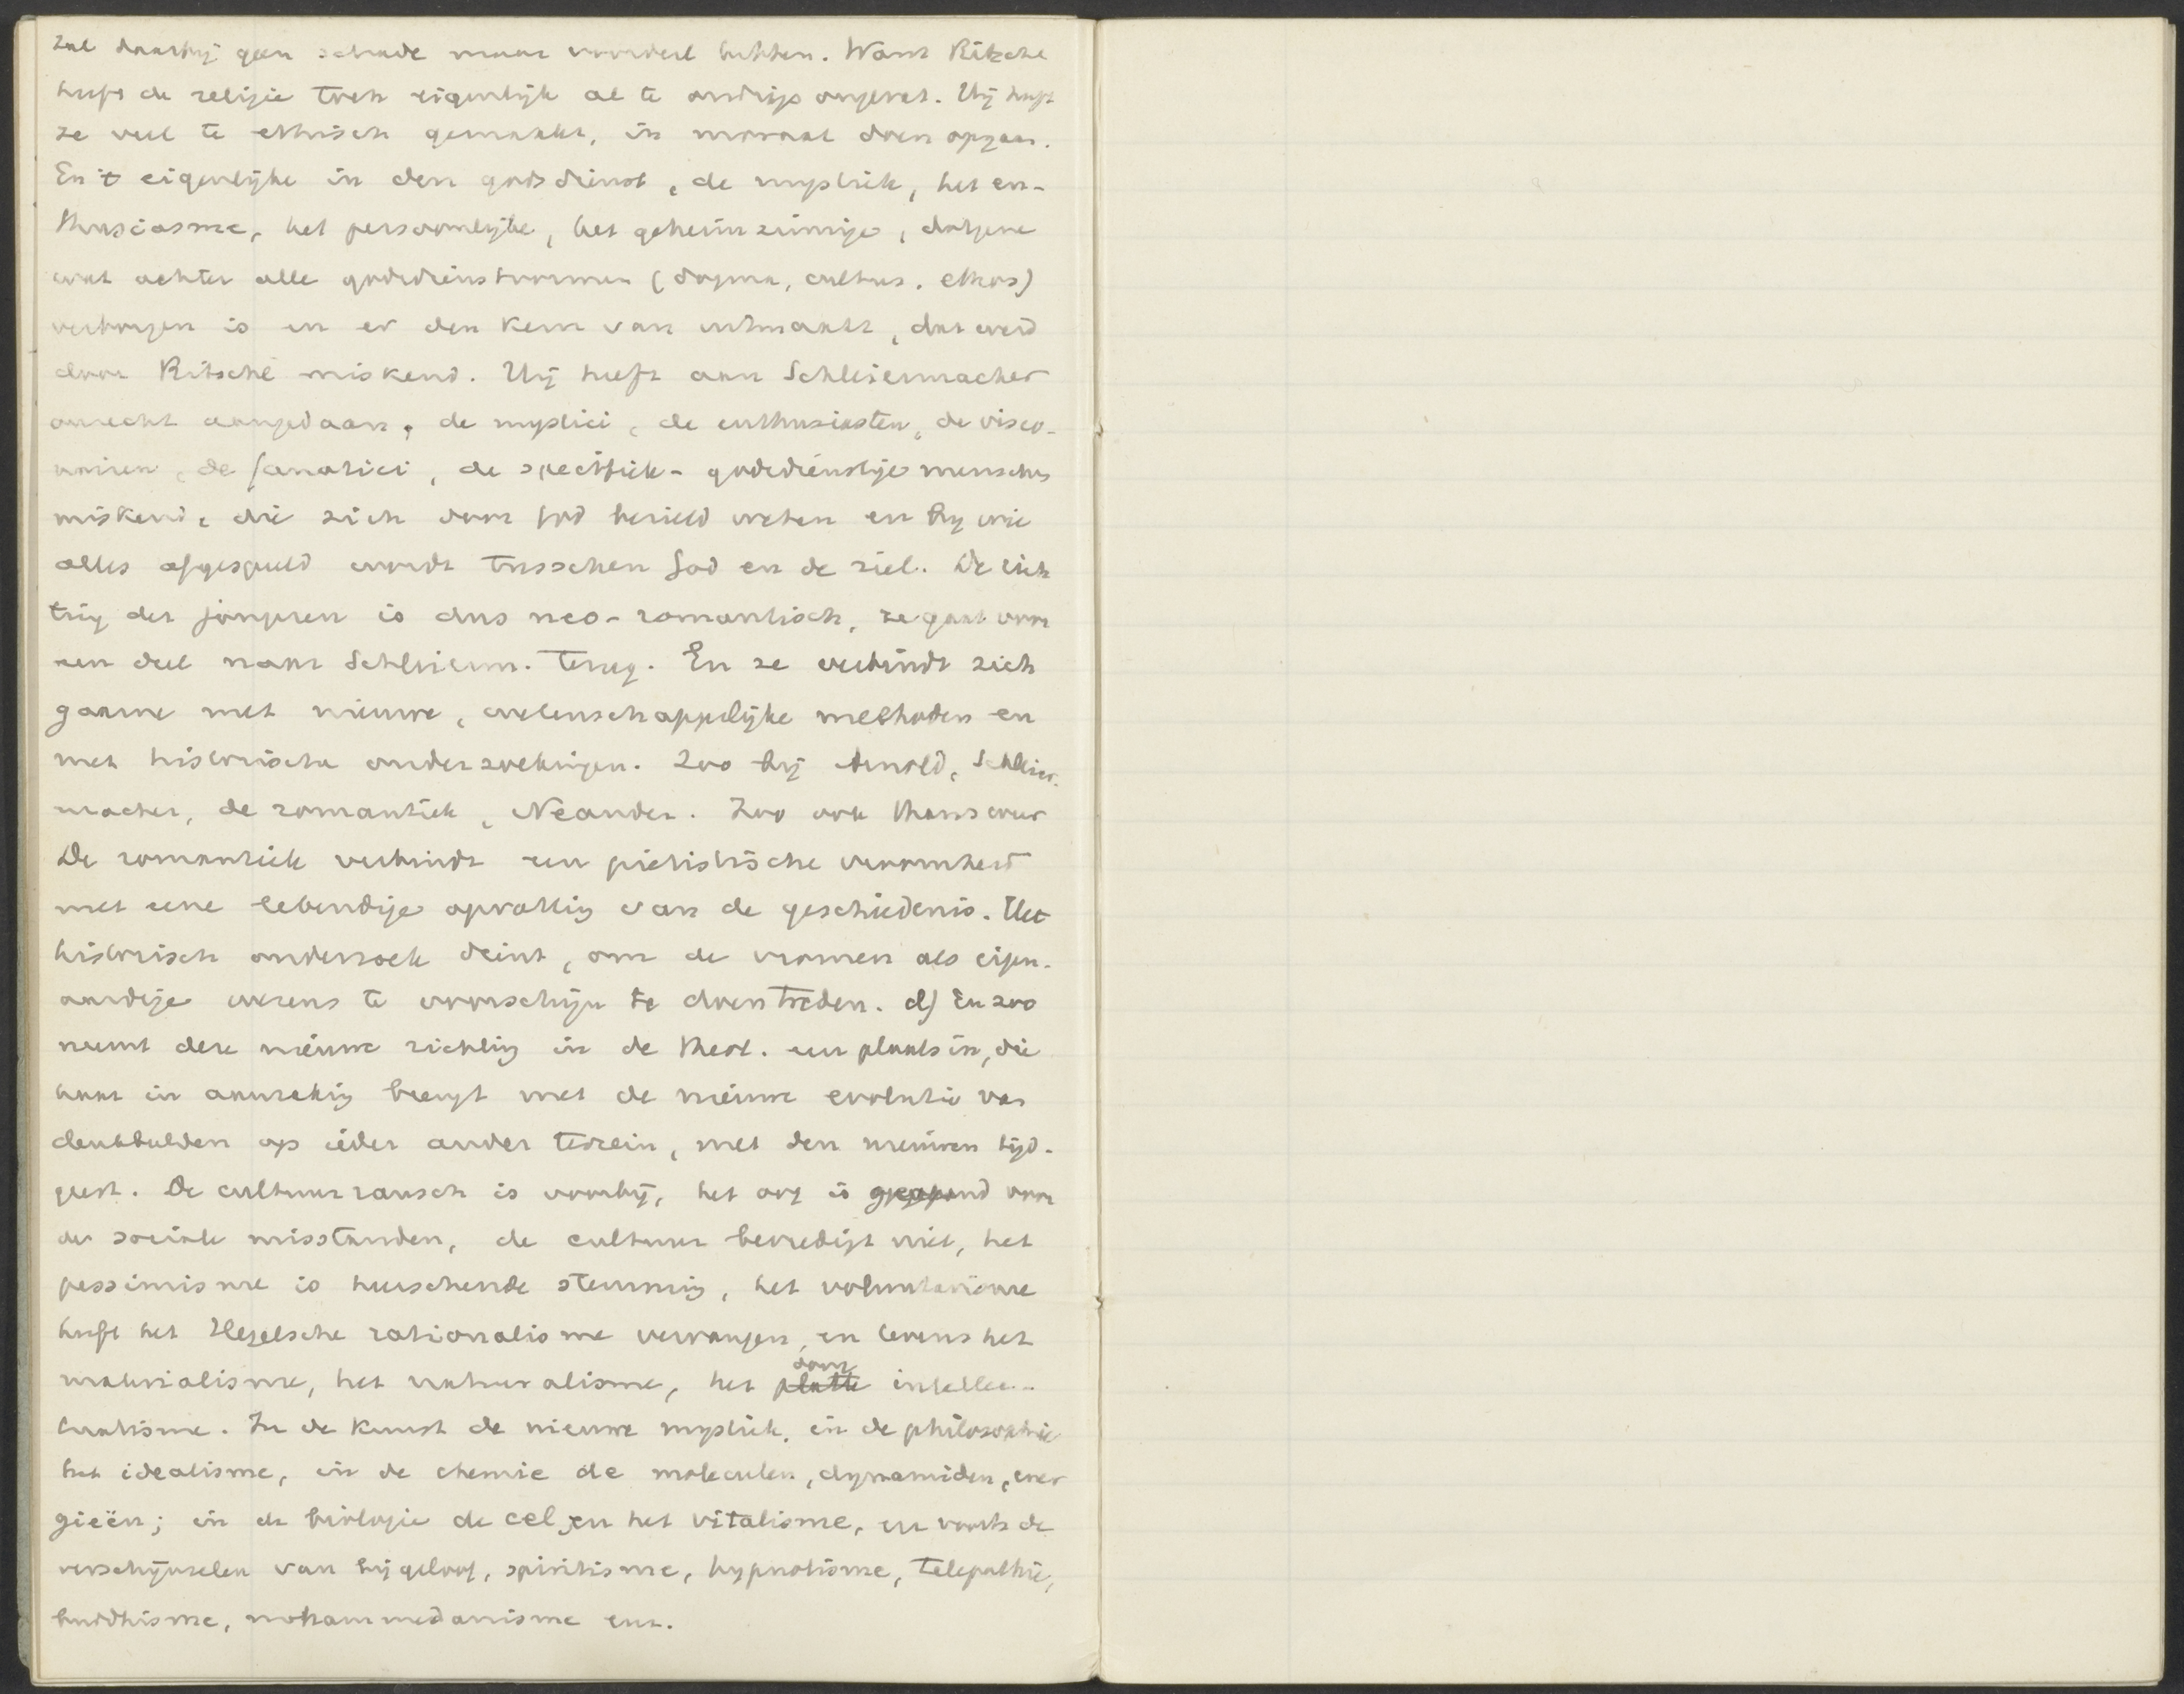 zal daarbij geen schade maar voordeel hebben. Want Ritschl
heeft de religie toch eigenlijk al te andrijs opgevat. Hij heeft
ze veel te ethisch gemaakt, in moraal doen opgaan.
En 't eigenlijke in den godsdienst, de mystiek, het en-
thusiasme, het persoonlijke, het geheimzinnige, datgene
wat achter alle godsdienstvormen (dogma, cultus, ethos)
verborgen is en er den kern van uitmaakt, dat werd
door Ritschl miskend. Hij heeft aan Schleiermacher
onrecht aangedaan, de mystici, de enthusiasten, de visio-
nairen, de fanatici, de specifiek-godsdienstige menschen
miskend, die zich door God bezield weten en bij wie
alles afgespeeld wordt tusschen God en de ziel. De rich
ting der jongeren is dus neo-romantisch, ze gaat voor
een deel naar Schleierm. terug. En ze verbindt zich
gaarne met nieuwe, wetenschappelijke methoden en
met historische onderzoekingen. Zoo bij Arnold, Schleier-
macher, de romantiek, Neander. Zoo ook thans weer
De romantiek verbindt een piëtistische vroomheid
met eene levendige opvatting van de geschiedenis. Het
historisch onderzoek dient, om de vromen als eigen-
aardige wezens te voorschijn te doen treden. d) En zoo
neemt deze nieuwe richting in de theol. een plaats in, die
haar in aanraking brengt met de nieuwe evolutie van
denkbeelden op ieder ander terrein, met den nieuwen tijd-
geest. De cultuurrausch is voorbij, het oog is geopend voor
de sociale misstanden, de cultuur bevredigt niet, het
pessimisme is heerschende stemming, het voluntarisme
heeft het Hegelsche rationalisme vervangen, en tevens het
materialisme, het naturalisme, het platte dorre intellec-
tualisme. In de kunst de nieuwe mystiek, in de philosophie
het idealisme, in de chemie de moleculen, dynamiden, ener
gieën; in de biologie de cel, en het vitalisme, en voorts de
verschijnselen van bijgeloof, spiritisme, hypnotisme, telepathie,
buddhisme, mohammedanisme enz.